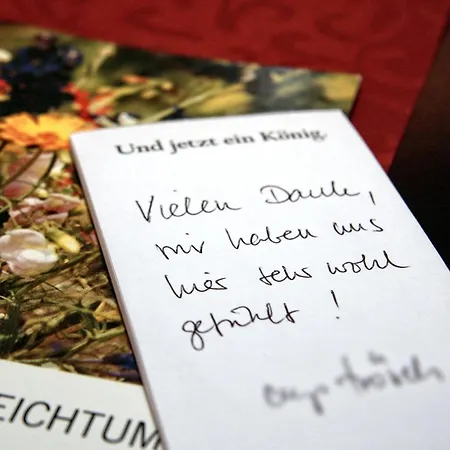 Und jetzt ein König.
Vielen Dank,
wir haben uns
hier sehr wohl
gefühlt !
EICHTUM